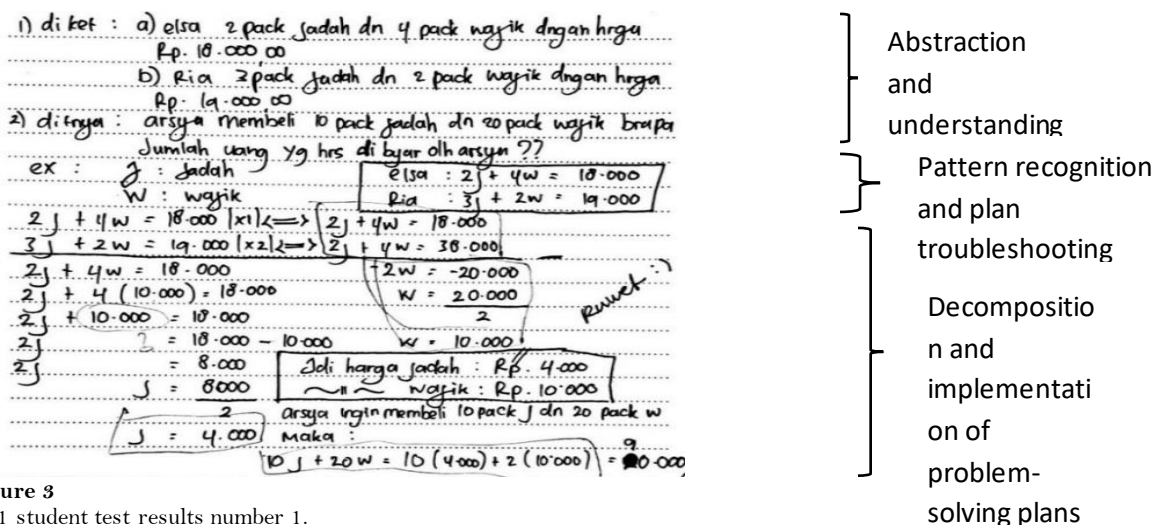 1) di ket : a) elsa 2 pack jadah dn 4 pack wajik dngan hrga
Rp. 18.000,00
b) Ria 3 pack jadah dn 2 pack wajik dngan hrga
Rp. 19.000,00
2) ditnya : arsya membeli 10 pack jadah dn 20 pack wajik brapa
Jumlah uang yg hrs di byar olh arsya ??
ex : J : Jadah
W : wajik
elsa : 2j + 4w = 18.000
Ria : 3j + 2w = 19.000
2j + 4w = 18.000 |x1| <=> 2j + 4w = 18.000
3j + 2w = 19.000 |x2| <=> 2j + 4w = 38.000
-2w = -20.000
w = 20.000
2
w = 10.000
ruwet :)
2j + 4w = 18.000
2j + 4 (10.000) = 18.000
2j + 10.000 = 18.000
2j = 18.000 - 10.000
2j = 8.000
J = 8000
2
J = 4.000
Jdi harga jadah : Rp. 4.000
~ 11 ~ wajik : Rp. 10.000
arsya ingin membeli 10 pack J dn 20 pack w
Maka :
10 J + 20 W = 10 (4.000) + 2 (10.000) = 90.000
Abstraction
and
understanding
Pattern recognition
and plan
troubleshooting
Decompositio
n and
implementati
on of
problem-
solving plans
ure 3
1 student test results number 1.